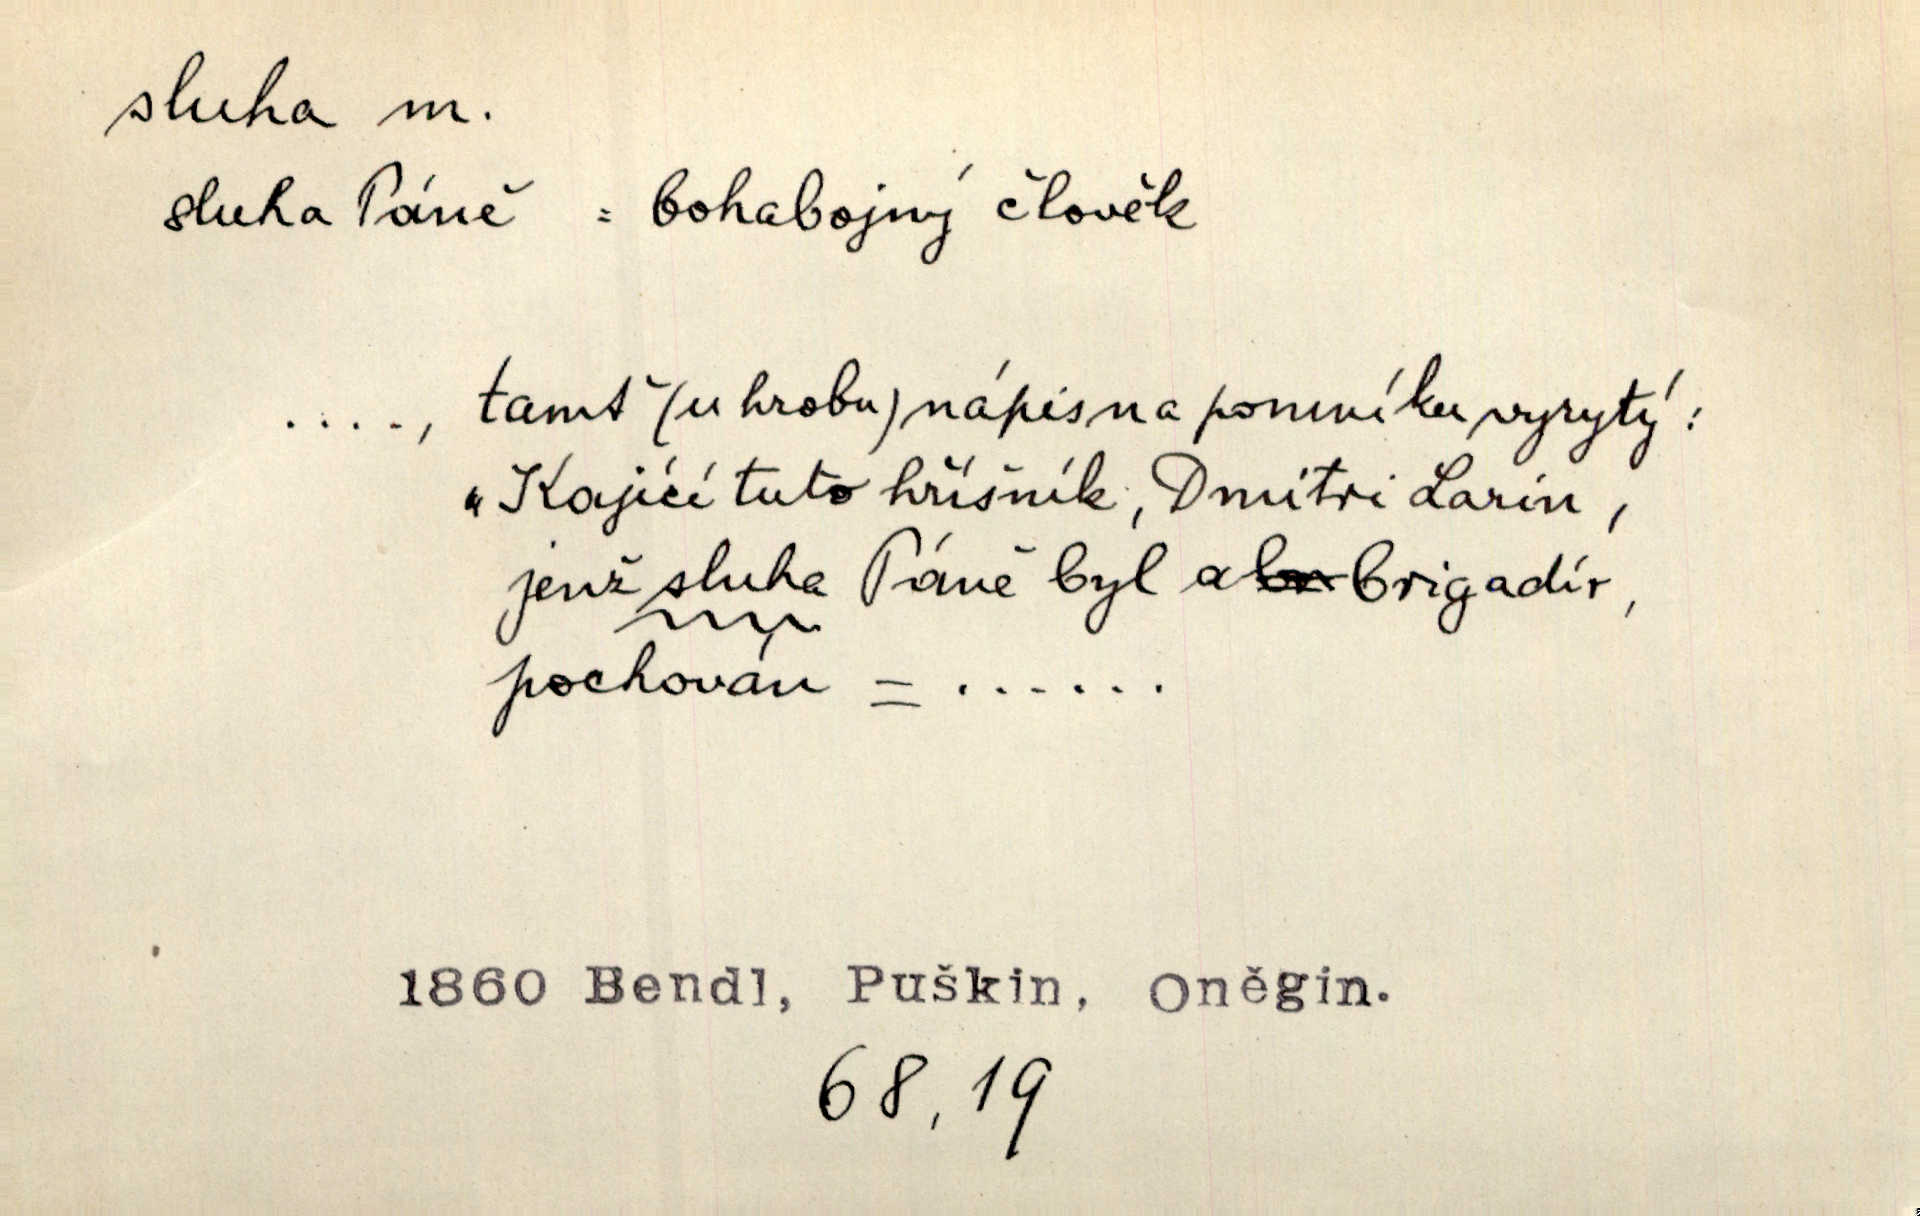 sluha m.
sluha Páně = bohabojný člověk
...., tamť (u hrobu) nápis na pomníku vyrytý:
„Kající tuto hříšník, Dmitri Larin,
jenž sluha Páně byl a brigadír,
pochován = ......
1860 Bendl, Puškin, Oněgin.
68,19